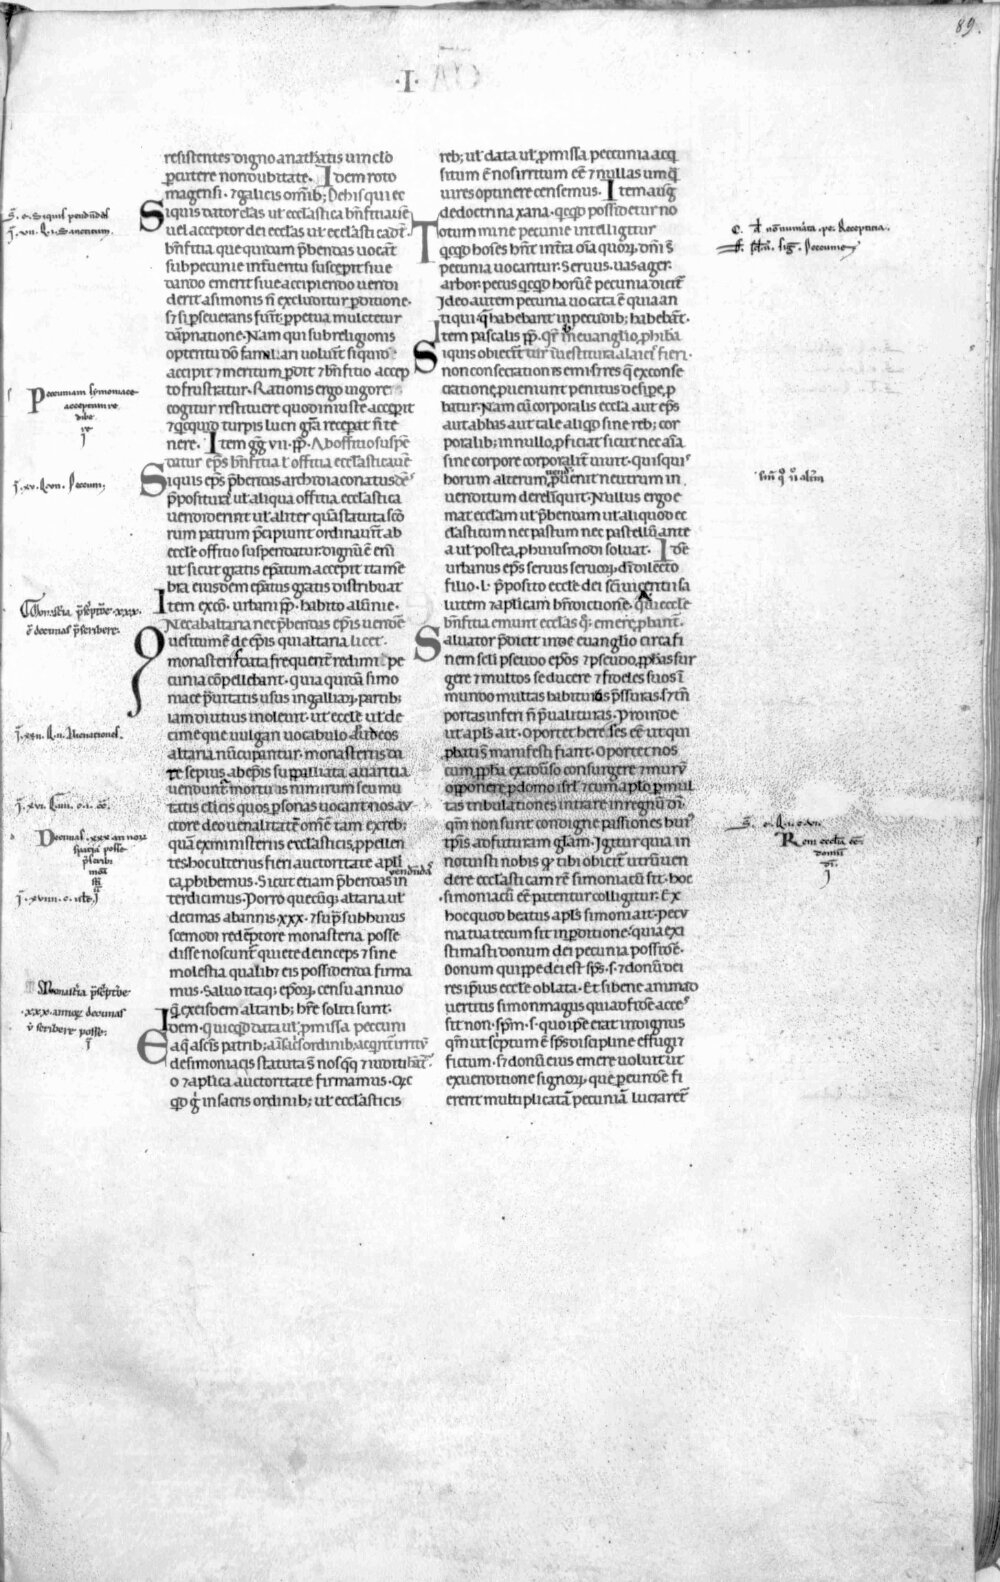 89.
·I·
resistentes digno anathatis uinclo
pcutere non dubitate. Idem roto
magensi. ⁊ galicis omib; De his qui ec
Siquis dator clas ul' ecclastica bn̄fitia uē
uel acceptor dei ecclas ul' ecclastica
bn̄fitia que quidam p̄bendas uocat̄
sub pecunie interuentu suscepit siue
dando emerit siue accipiendo uendi
derit a simonis n̄ excluditur pditione.
S; si pseuerans fuīt. ppetua mulctetur
dāpnatione. Nam qui sub religionis
optentu dō famulari uolunt si quid
accipit ⁊ meritum pdit ⁊ bn̄fitio accep
to frustratur. Rationis ergo uigore
cogitur restituere quod iniuste acceperit
⁊ qcquid turpis lucri grā recepat n̄ te
nere. Item gg̃ vii. pp̄. Ab offitio suspē
datur ep̄s bn̄fitia l' offitia ecclastica uē
Siquis ep̄s p̄bendas archidiaconatus dē
p̄posituras ul' aliqua offitia ecclastica
uendiderint ul' aliter quā statuta scō
rum patrum p̄cipiunt ordinauīt ab
eccle offitio suspendatur. dignū ē enī
ut sicut gratis epatum accepit ita mē
bra eiusdem epatus gratis distribuat
Item ex cō. urbani pp̄. habito aluīnie.
Nec ab altaria nec p̄bendas ep̄is uendē
Quesitum ē de ep̄is qui altaria licet.
monasteriis data frequenter redimi pe
cunia cōpellebant. quia quidā simo
niace prauitatis usus in galliar. partib;
iam diutius inoleuit. ut eccle ul' de
cime que uulgari uocabulo
altaria nūcupantur. monasteriis da
te sepius ab ep̄is sub palliata auaritia
uendunt. mortuis nimirum seu mu
tatis clicis quos psonas uocant nos au
ctore deo uenalitatē omē tam ex reb;
quā ex ministeriis ecclasticis, ppellen
tes hoc ulterius fieri auctoritate apli
ca phibemus. Sicut etiam p̄bendas uendendas in
terdicimus. Porro quecūq; altaria ul'
decimas ab annis. xxx. ⁊ supͣ sub huius
scemodi redēptione monasteria posse
disse noscunt. quiete deinceps ⁊ sine
molestia qualib; eis possidenda firma
mus. Saluo itaq; ep̄or. censu annuo
q̄ ex eisdem altarib; hr̄e soliti sunt.
Idem. quicqd data ul' pmissa peccuni
Ea q̄ a scīs patrib; a sacis ordinib;
de simoniacis statuta s̄ nos qq ⁊ iudicio
o ⁊ aplica auctoritate firmamus. Qc
qd g in sacris ordinib; ul' ecclasticis
reb; ul' data ul' pmissa peccunia acq
situm ē nos irritum eē ⁊ nullas umq̄
uires optinere censemus. Item aug
de doctrina xana. qcqd possidetur no
Totum mine pecunie intelligitur
qcqd hoīes hn̄t in tra oīa quor. dn̄i s̄
pecunia uocantur. Seruus. uas ager.
arbor. pecus qcqd horū ē pecunia dicit̄
Ideo autem pecunia uocata ē quia an
tiqui. q̄ habebant in pecudib; habebant.
Item pascalis pp̄. qr in euanglio, phiba
Siquis obiecit tur inuestitura a laicis fieri.
non consecrationis emi s; res q̄ ex conse
cratione pueniunt penitus desipe, p
batur. Nam cū corporalis eccla aut ep̄s
aut abbas aut tale aliqd sine reb; cor
poralib; in nullo, pficiat sicut nec aīa
sine corpore corporalit uiuit. quisquis
horum alterum uendit puenit neutrum in
uenditum derelīquit. Nullus ergo e
mat ecclam ul' p̄bendam ul' aliquod ec
clasticum nec pastum nec pastellū ante
a ul' postea, p huiusmodi soluat. Idē
urbanus ep̄s seruus seruor. dī dilecto
filio. l. p̄posito eccle dei sc̄i uicentii sa
lutem ⁊ aplicam bn̄dictionē. qui eccle
bn̄fitia emunt ecclas q̇: emere, pbant.
Saluator pdicit in euanglio circa fi
nem scli pseudo ep̄os ⁊ pseudo, pphas sur
gere ⁊ multos seducere ⁊ fideles suos ī
mundo multas habituros p̄ssuras. s; tn̄
portas inferi n̄ p̄ualituras. Proinde
ut apl's ait. Oportet hereses eē ut qui
pbati s̄ manifesti fiant. Oportet nos
cum ppha ex aduso consurgere ⁊ murū
opponere p domo isrl ⁊ cum aplo p mul
tas tribulationes intrare in regnū dī.
qm̄ non sunt condigne passiones hui'
tp̄is ad futuram glam. Igitur quia in
notuisti nobis qr tibi obicit utrū uen
dere ecclasticam rē simoniacū sit. hoc
simoniacū eē patentur colligitur. Ex
hoc quod beatus apl's simoni ait. pecu
nia tua tecum sit in pditione: quia exi
stimasti donum dei pecunia possidē.
Donum quippe dei est sp̄s. s. ⁊ donū dei
res ipsius eccle oblata. Et si bene animad
uertitis simon magus quia ad fidē acces
sit non. spm. s. quo ipse erat indignus
qm̄ ut sc̄ptum ē sp̄s discipline effugi⁊
fictum. s; donū eius emere uoluit ut
ex uenditione signor. que p eundē fi
erent multiplicatā pecuniā lucraret̄
Peccuniam symoniace
acceptam re
dibe
re
Monast'ia p̄scptōe. xxx.
decimas p̄scribere.
Decimas. xxx annor
spatia posse
p̄scribi
Monast'ia p̄scptōe
.xxx. annor. decimas
p̄scribere posse.
Rem ecclie eē
domū
dī.